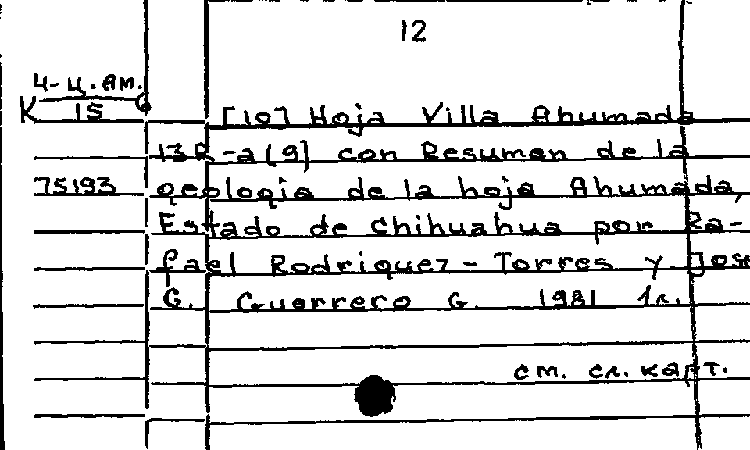 12
4-Ц.Ам.
К 15 6
[10] Hoja Villa Ahumada
13R-a(9) con Resumen de la
75193 geologia de la hoja Ahumada,
Estado de Chihuahua por Ra-
fael Rodriguez-Torres y Jose
G. Guerrero G. 1981 1л.
см. сл. карт.